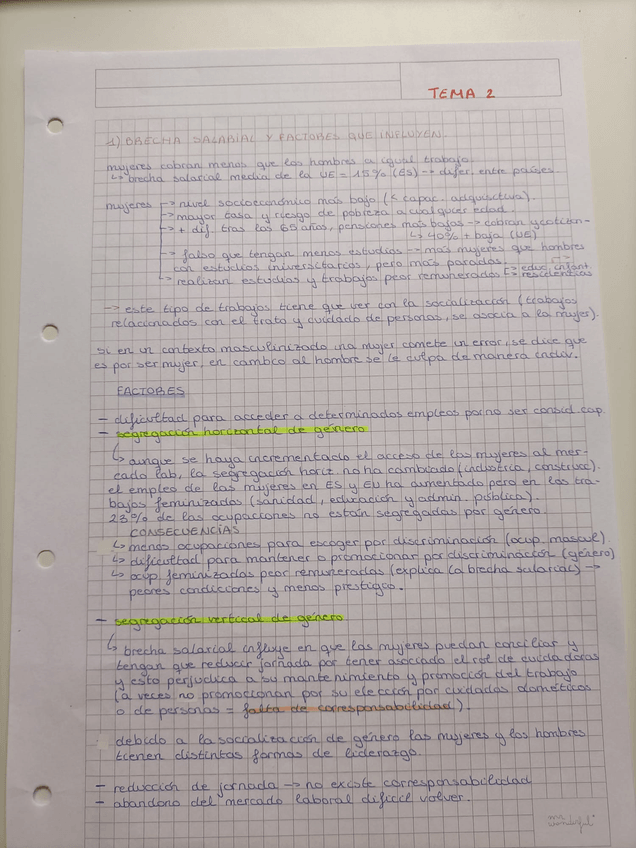 TEMA 2
1) BRECHA SALARIAL Y FACTORES QUE INFLUYEN.
mujeres cobran menos que los hombres a igual trabajo.
↳ brecha salarial media de la UE = 15% (ES) → difer. entre países.
mujeres → nivel socioeconómico más bajo (< capac. adquisitiva).
→ mayor tasa y riesgo de pobreza a cualquier edad.
→ + dif. tras los 65 años, pensiones más bajas → cobran y cotizan-
↳ 40% + baja (UE)
→ falso que tengan menos estudios → más mujeres que hombres
con estudios universitarios, pero más paradas.
→ realizan estudios y trabajos peor remunerados → educ. infant.
→ residencias
→ este tipo de trabajos tiene que ver con la socialización (trabajos
relacionados con el trato y cuidado de personas, se asocia a la mujer).
Si en un contexto masculinizado una mujer comete un error, se dice que
es por ser mujer, en cambio al hombre se le culpa de manera indiv.
FACTORES
- dificultad para acceder a determinados empleos por no ser consid. cap.
- segregación horizontal de género
↳ aunque se haya incrementado el acceso de las mujeres al mer-
cado lab, la segregación horiz. no ha cambiado (industria, construcc).
el empleo de las mujeres en ES y EU ha aumentado pero en los tra-
bajos feminizados (sanidad, educación y admin. pública).
23% de las ocupaciones no están segregadas por género.
CONSECUENCIAS
↳ menos ocupaciones para escoger por discriminación (ocup. mascul).
↳ dificultad para mantener o promocionar por discriminación (género)
↳ ocup. feminizadas peor remuneradas (explica la brecha salarial) →
peores condiciones y menos prestigio.
- segregación vertical de género
↳ brecha salarial influye en que las mujeres puedan conciliar y
tengan que reducir jornada por tener asociado el rol de cuidadoras
y esto perjudica a su mantenimiento y promoción del trabajo
(a veces no promocionan por su elección por cuidados domésticos
o de personas = falta de corresponsabilidad).
debido a la socialización de género las mujeres y los hombres
tienen distintas formas de liderazgo.
- reducción de jornada → no existe corresponsabilidad
- abandono del mercado laboral difícil volver.
mr.
wonderful*